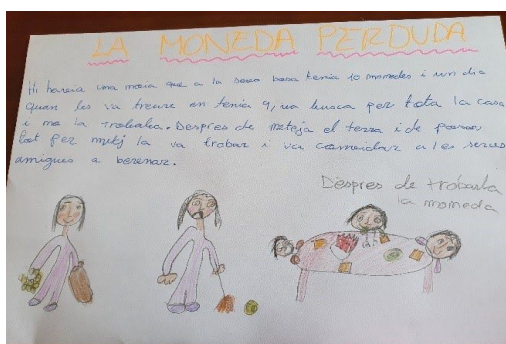 LA MONEDA PERDUDA
Hi havia una noia que a la seva bossa tenia 10 monedes i un dia
quan les va treure en tenia 9, va busca per tota la casa
i no la trobaba. Despres de neteja el terra i de posar
tot per mitj la va trobar i va convidar a les seves
amigues a berenar.
Despres de trobarla
la moneda